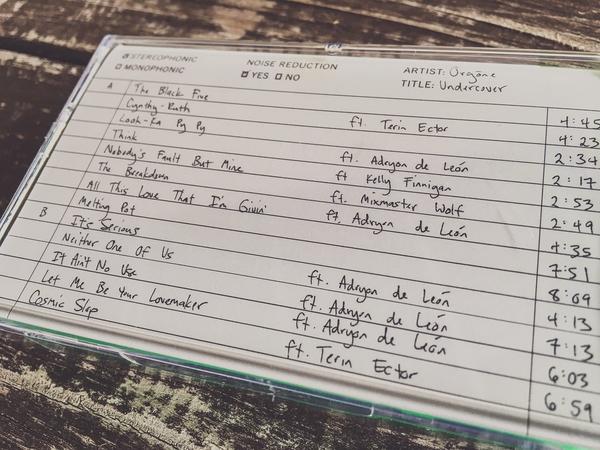 ☑ STEREOPHONIC
☐ MONOPHONIC
NOISE REDUCTION
☑ YES ☐ NO
ARTIST: Orgōne
TITLE: Undercover
A The Black Five 4:45
Cynthy-Ruth ft. Terin Ector 4:23
Look-Ka Py Py 2:34
Think ft. Adryon de León 2:17
Nobody's Fault But Mine ft Kelly Finnigan 2:53
The Breakdown ft. Mixmaster Wolf 2:49
All This Love That I'm Givin' ft. Adryon de León 4:35
Melting Pot 7:51
B It's Serious 8:09
Neither One Of Us ft. Adryon de León 4:13
It Ain't No Use ft. Adryon de León 7:13
Let Me Be Your Lovemaker ft. Adryon de León 6:03
Cosmic Slop ft. Terin Ector 6:59